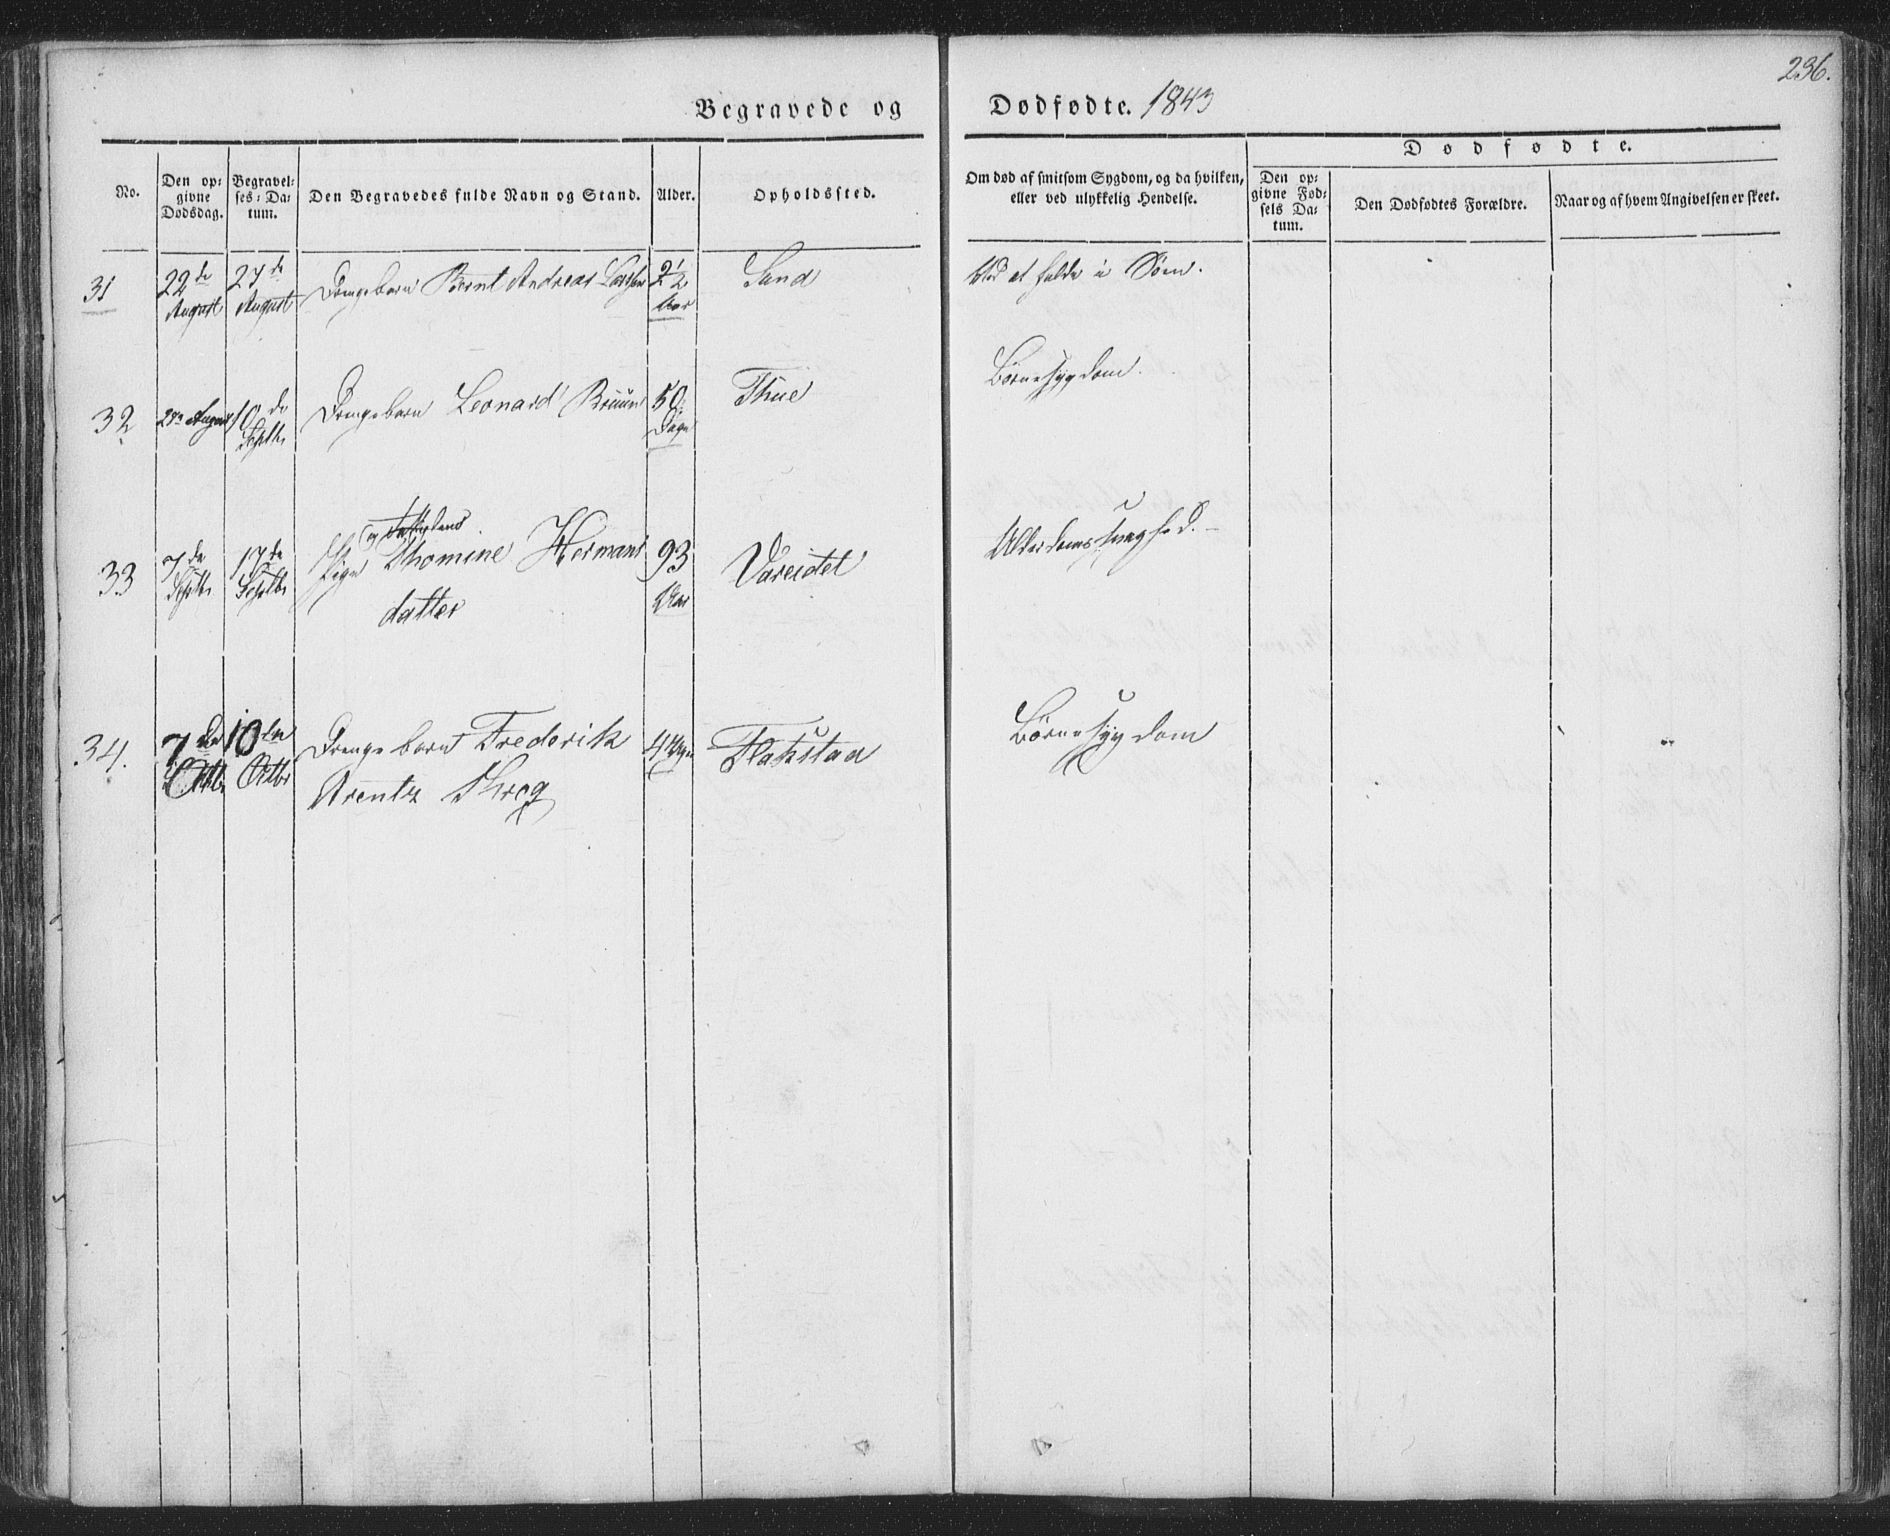 236.
Begravede og Dødfødte. 1843
Dødfødte.
No.
Den op-
givne
Dødsdag.
Begravel-
ses-Da-
tum.
Den Begravedes fulde Navn og Stand.
Alder.
Opholdssted.
Om død af smitsom Sygdom, og da hvilken,
eller ved ulykkelig Hendelse.
Den op-
givne Fød-
sels Da-
tum.
Den Dødfødtes Forældre.
Naar og af hvem Angivelsen er skeet.
31
22de
August
27de
August
Drengebarn Bernt Andreas Larsen
2 1/2
Aar
Sand
Ved at falde i Søen.
32
28de August
10de
Septbr
Drengebarn Leonard Bruun
50
Dage
Thue
Børnesygdom.
33
7de
Septbr
17de
Septbr
og
Pige Thomine Hermans
datter
93
Aar
Vareidet
Alderdomssvaghed.
34.
7de
Octbr
10de
Octbr
Drengebarn Frederik
Arentz Throg
4 Uger
Flakstad
Børnesygdom